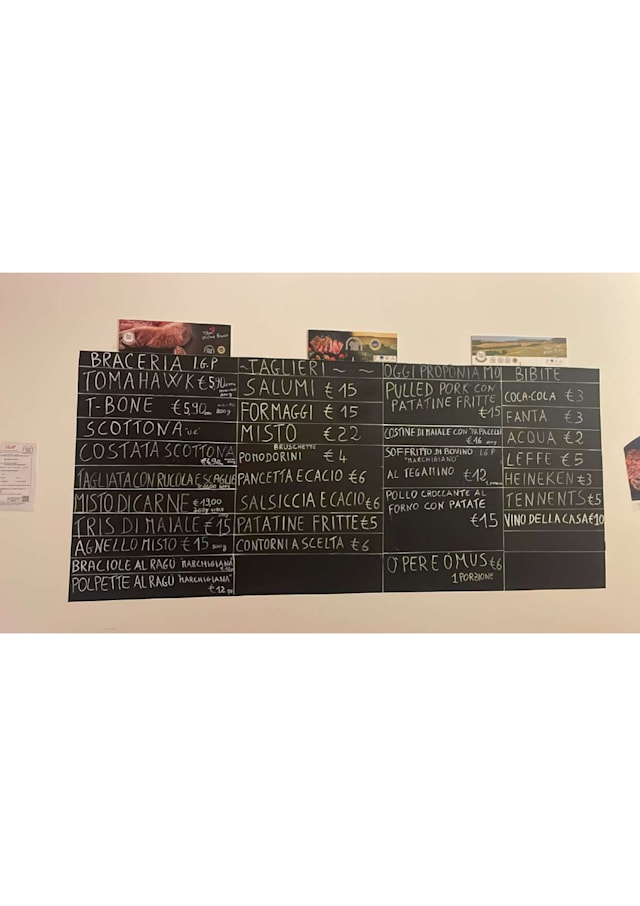 BRACERIA I.G.P
TOMAHAWK €5,90
T-BONE €5,90
SCOTTONA "UE"
COSTATA SCOTTONA
€6,90
TAGLIATA CON RUCOLA E SCAGLIE
MISTO DI CARNE €19,00
700g
TRIS DI MAIALE €15
AGNELLO MISTO €15 500g
BRACIOLE AL RAGÙ "MARCHIGIANA"
POLPETTE AL RAGÙ "MARCHIGIANA"
€12
~TAGLIERI~ ~
SALUMI €15
FORMAGGI €15
MISTO €22
BRUSCHETTE
POMODORINI €4
PANCETTA E CACIO €6
SALSICCIA E CACIO €6
PATATINE FRITTE €5
CONTORNI A SCELTA €6
OGGI PROPONIAMO
PULLED PORK CON
PATATINE FRITTE
€15
COSTINE DI MAIALE CON "PAPACCELLE"
€16
SOFFRITTO DI BOVINO I.G.P
"MARCHIGIANO"
AL TEGAMINO €12
POLLO CROCCANTE AL
FORNO CON PATATE
€15
O' PERE O' MUS €6
1 PORZIONE
BIBITE
COCA-COLA €3
FANTA €3
ACQUA €2
LEFFE €5
HEINEKEN €3
TENNENTS €5
VINO DELLA CASA €10